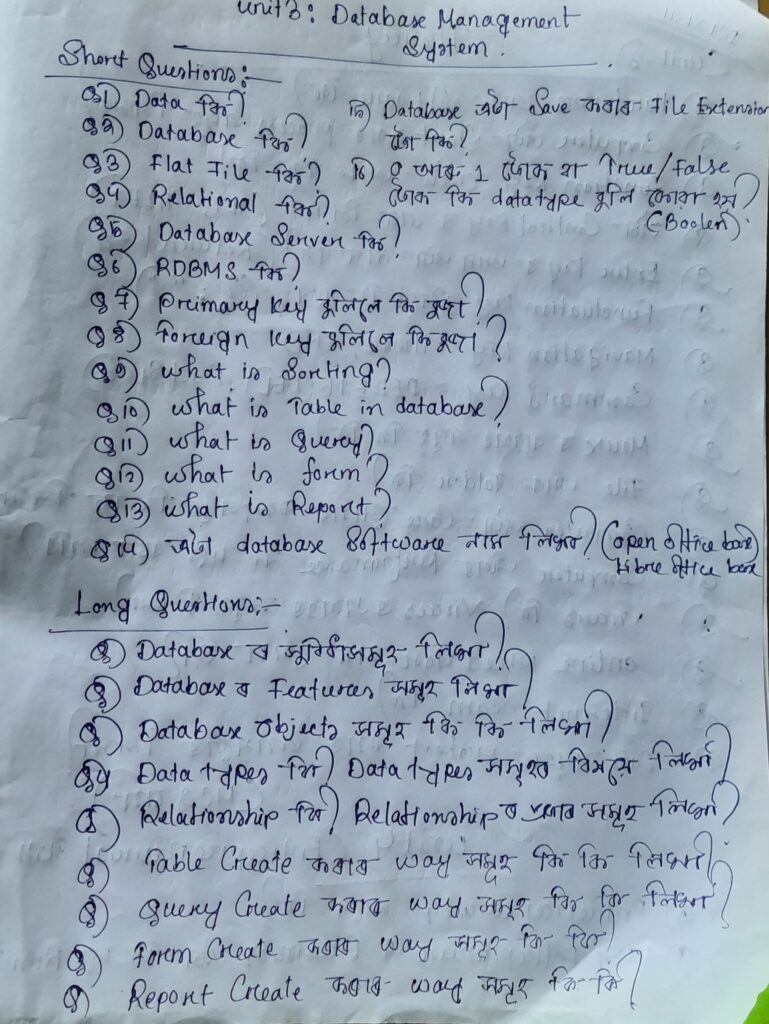 Unit 3: Database Management
System.
Short Questions:-
Q1) Data কি?
Q2) Database কি?
Q3) Flat File কি?
Q4) Relational কি?
Q5) Database Server কি?
Q6) RDBMS কি?
Q7) Primary Key বুলিলে কি বুজা?
Q8) Foreign Key বুলিলে কি বুজা?
Q9) What is Sorting?
Q10) What is Table in database?
Q11) What is Query?
Q12) What is form?
Q13) What is Report?
Q14) এটা database Software নাম লিখা? (open office base)
Libre office base
15) Database এটা Save কৰাৰ File Extension
টো কি?
16) 0 আৰু 1 টোক বা True/False
টোক কি datatype বুলি কোৱা হয়?
(Boolen)
Long Questions:-
Q) Database ৰ সুবিধাসমূহ লিখা?
Q) Database ৰ Features সমূহ লিখা?
Q) Database Objects সমূহ কি কি লিখা?
Q4) Data types কি? Data types সমূহৰ বিষয়ে লিখা?
Q) Relationship কি? Relationship ৰ প্ৰকাৰ সমূহ লিখা?
Q) Table Create কৰাৰ way সমূহ কি কি লিখা?
Q) Query Create কৰাৰ way সমূহ কি কি লিখা?
Q) Form Create কৰাৰ way সমূহ কি কি?
Q) Report Create কৰাৰ way সমূহ কি কি?